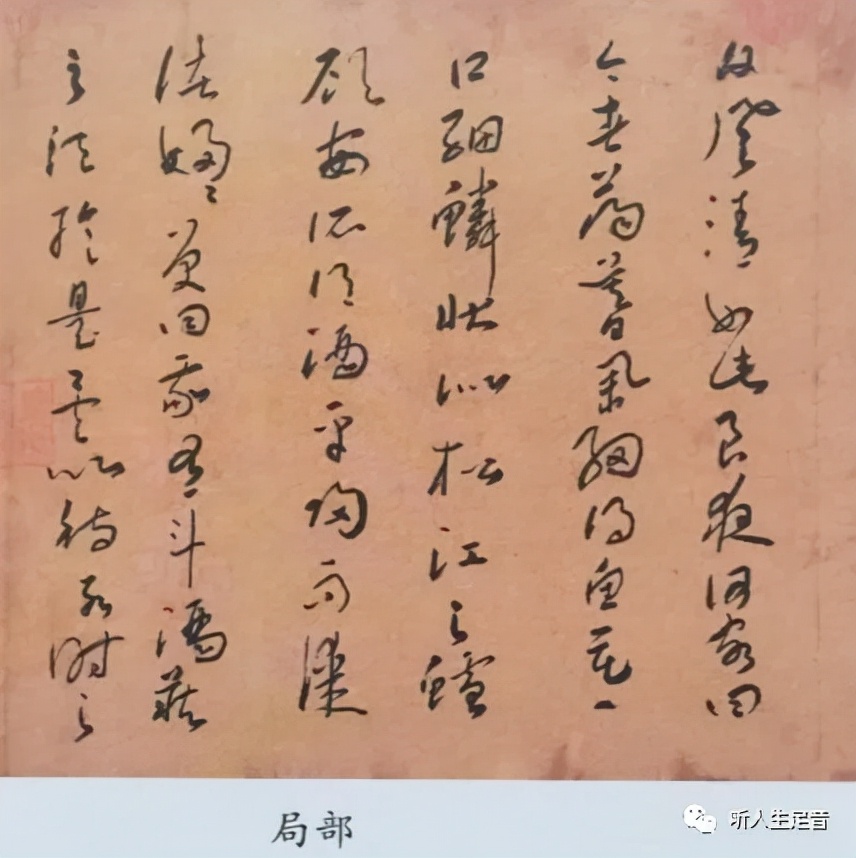 清如此良夜何客曰
今者薄暮網得魚
口細鱗狀似松江之鱸
顧安所得酒乎歸而謀
諸婦曰我有斗酒藏
之於是以待不時之
局部
听人生足音